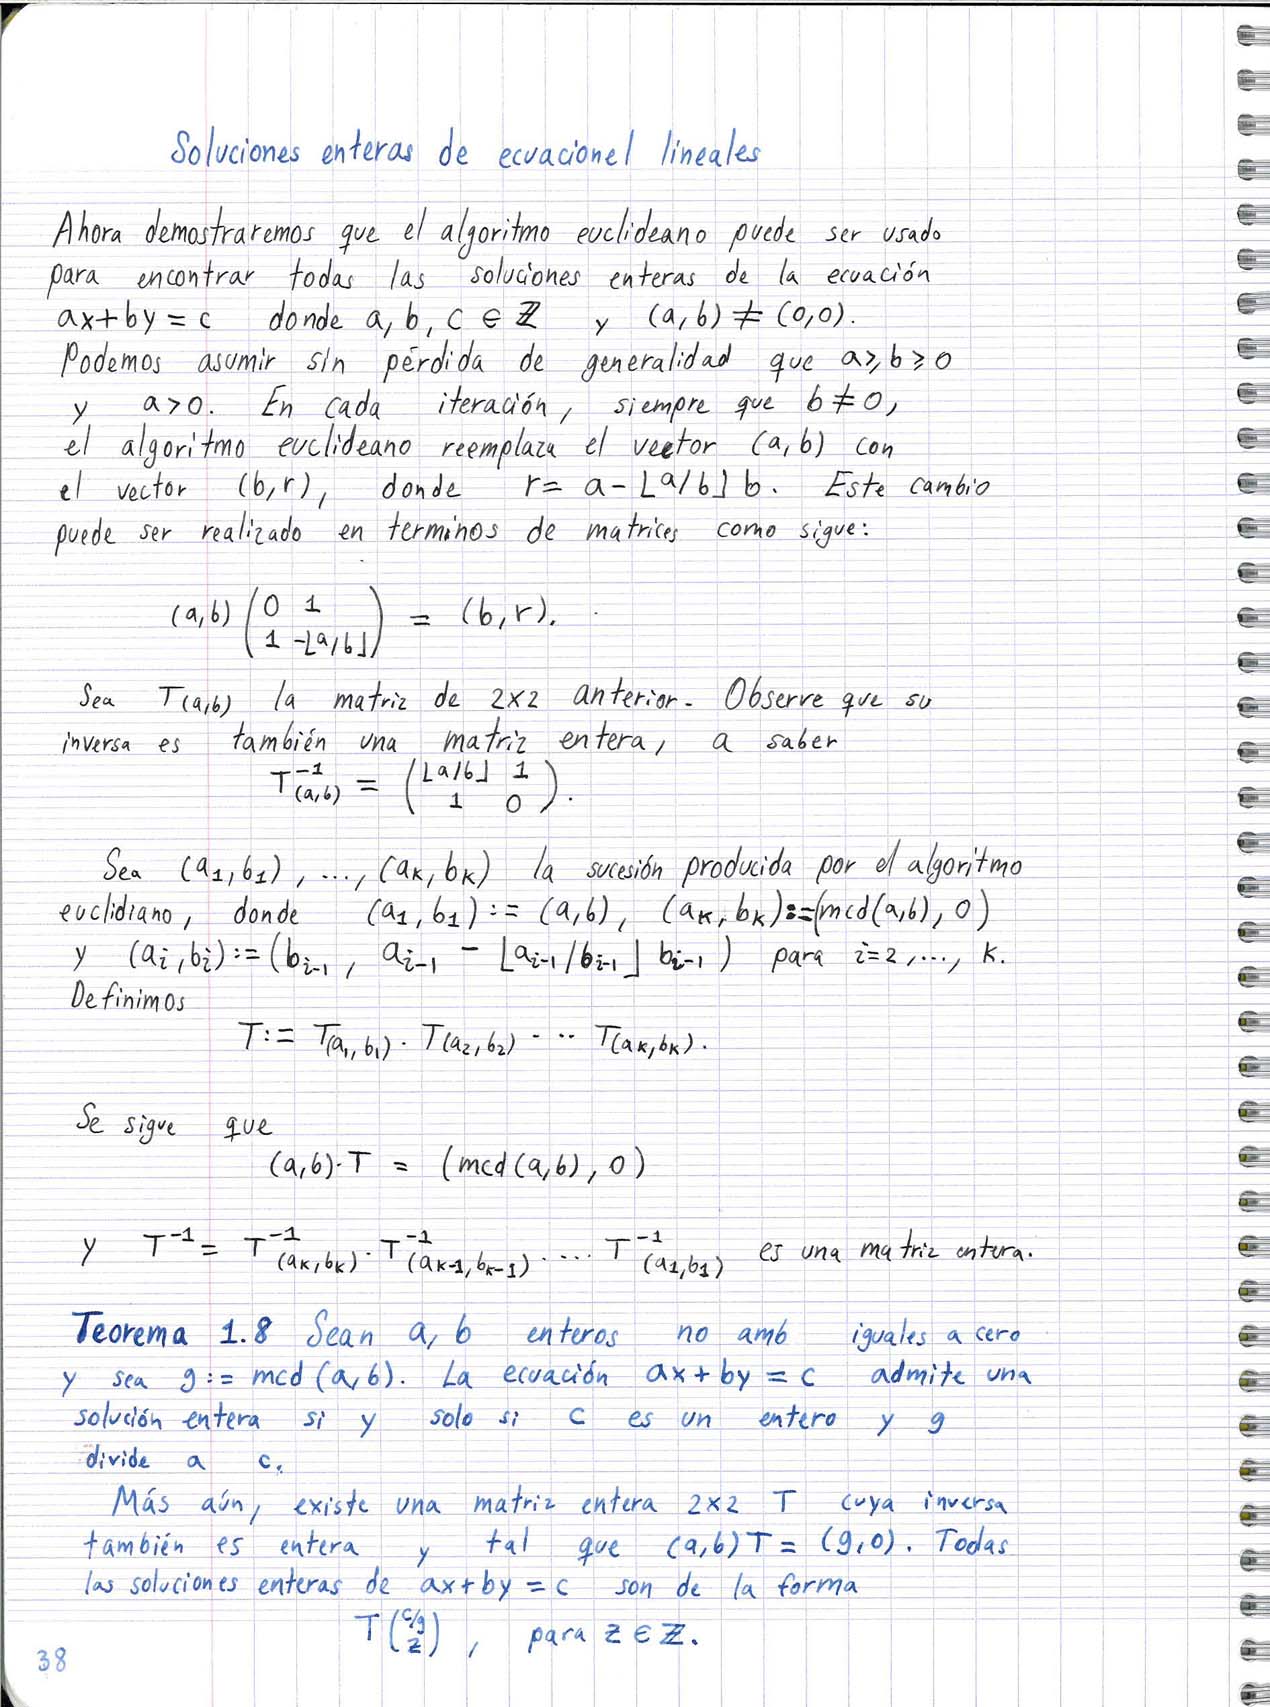 Soluciones enteras de ecuacionel lineales
Ahora demostraremos que el algoritmo euclideano puede ser usado
para encontrar todas las soluciones enteras de la ecuación
ax+by = c donde a, b, c ∈ ℤ y (a,b) ≠ (0,0).
Podemos asumir sin pérdida de generalidad que a ≥ b ≥ 0
y a>0. En cada iteración, siempre que b≠0,
el algoritmo euclideano reemplaza el vector (a,b) con
el vector (b,r), donde r= a-⌊a/b⌋ b. Este cambio
puede ser realizado en terminos de matrices como sigue:
(a,b) (0 1
1 -⌊a/b⌋) = (b,r).
Sea T(a,b) la matriz de 2x2 anterior. Observe que su
inversa es también una matriz entera, a saber
T⁻¹(a,b) = (⌊a/b⌋ 1
1 0).
Sea (a₁,b₁), ..., (aₖ,bₖ) la sucesión producida por el algoritmo
euclidiano, donde (a₁,b₁) := (a,b), (aₖ,bₖ):=(mcd(a,b), 0)
y (aᵢ,bᵢ):=(bᵢ₋₁, aᵢ₋₁ - ⌊aᵢ₋₁/bᵢ₋₁⌋ bᵢ₋₁) para i=2,..., k.
Definimos
T:= T(a₁,b₁) · T(a₂,b₂) · ·· T(aₖ,bₖ).
Se sigue que
(a,b)·T = (mcd(a,b), 0)
y T⁻¹ = T⁻¹(aₖ,bₖ) · T⁻¹(aₖ₋₁,bₖ₋₁) · ... T⁻¹(a₁,b₁) es una matriz entera.
Teorema 1.8 Sean a, b enteros no amb iguales a cero
y sea g:= mcd(a,b). La ecuación ax+by = c admite una
solución entera si y solo si c es un entero y g
divide a c.
Más aún, existe una matriz entera 2x2 T cuya inversa
también es entera y tal que (a,b)T = (g,0). Todas
las soluciones enteras de ax+by = c son de la forma
T(c/g
z), para z ∈ ℤ.
38